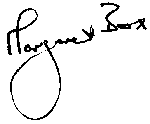 Margaret Box